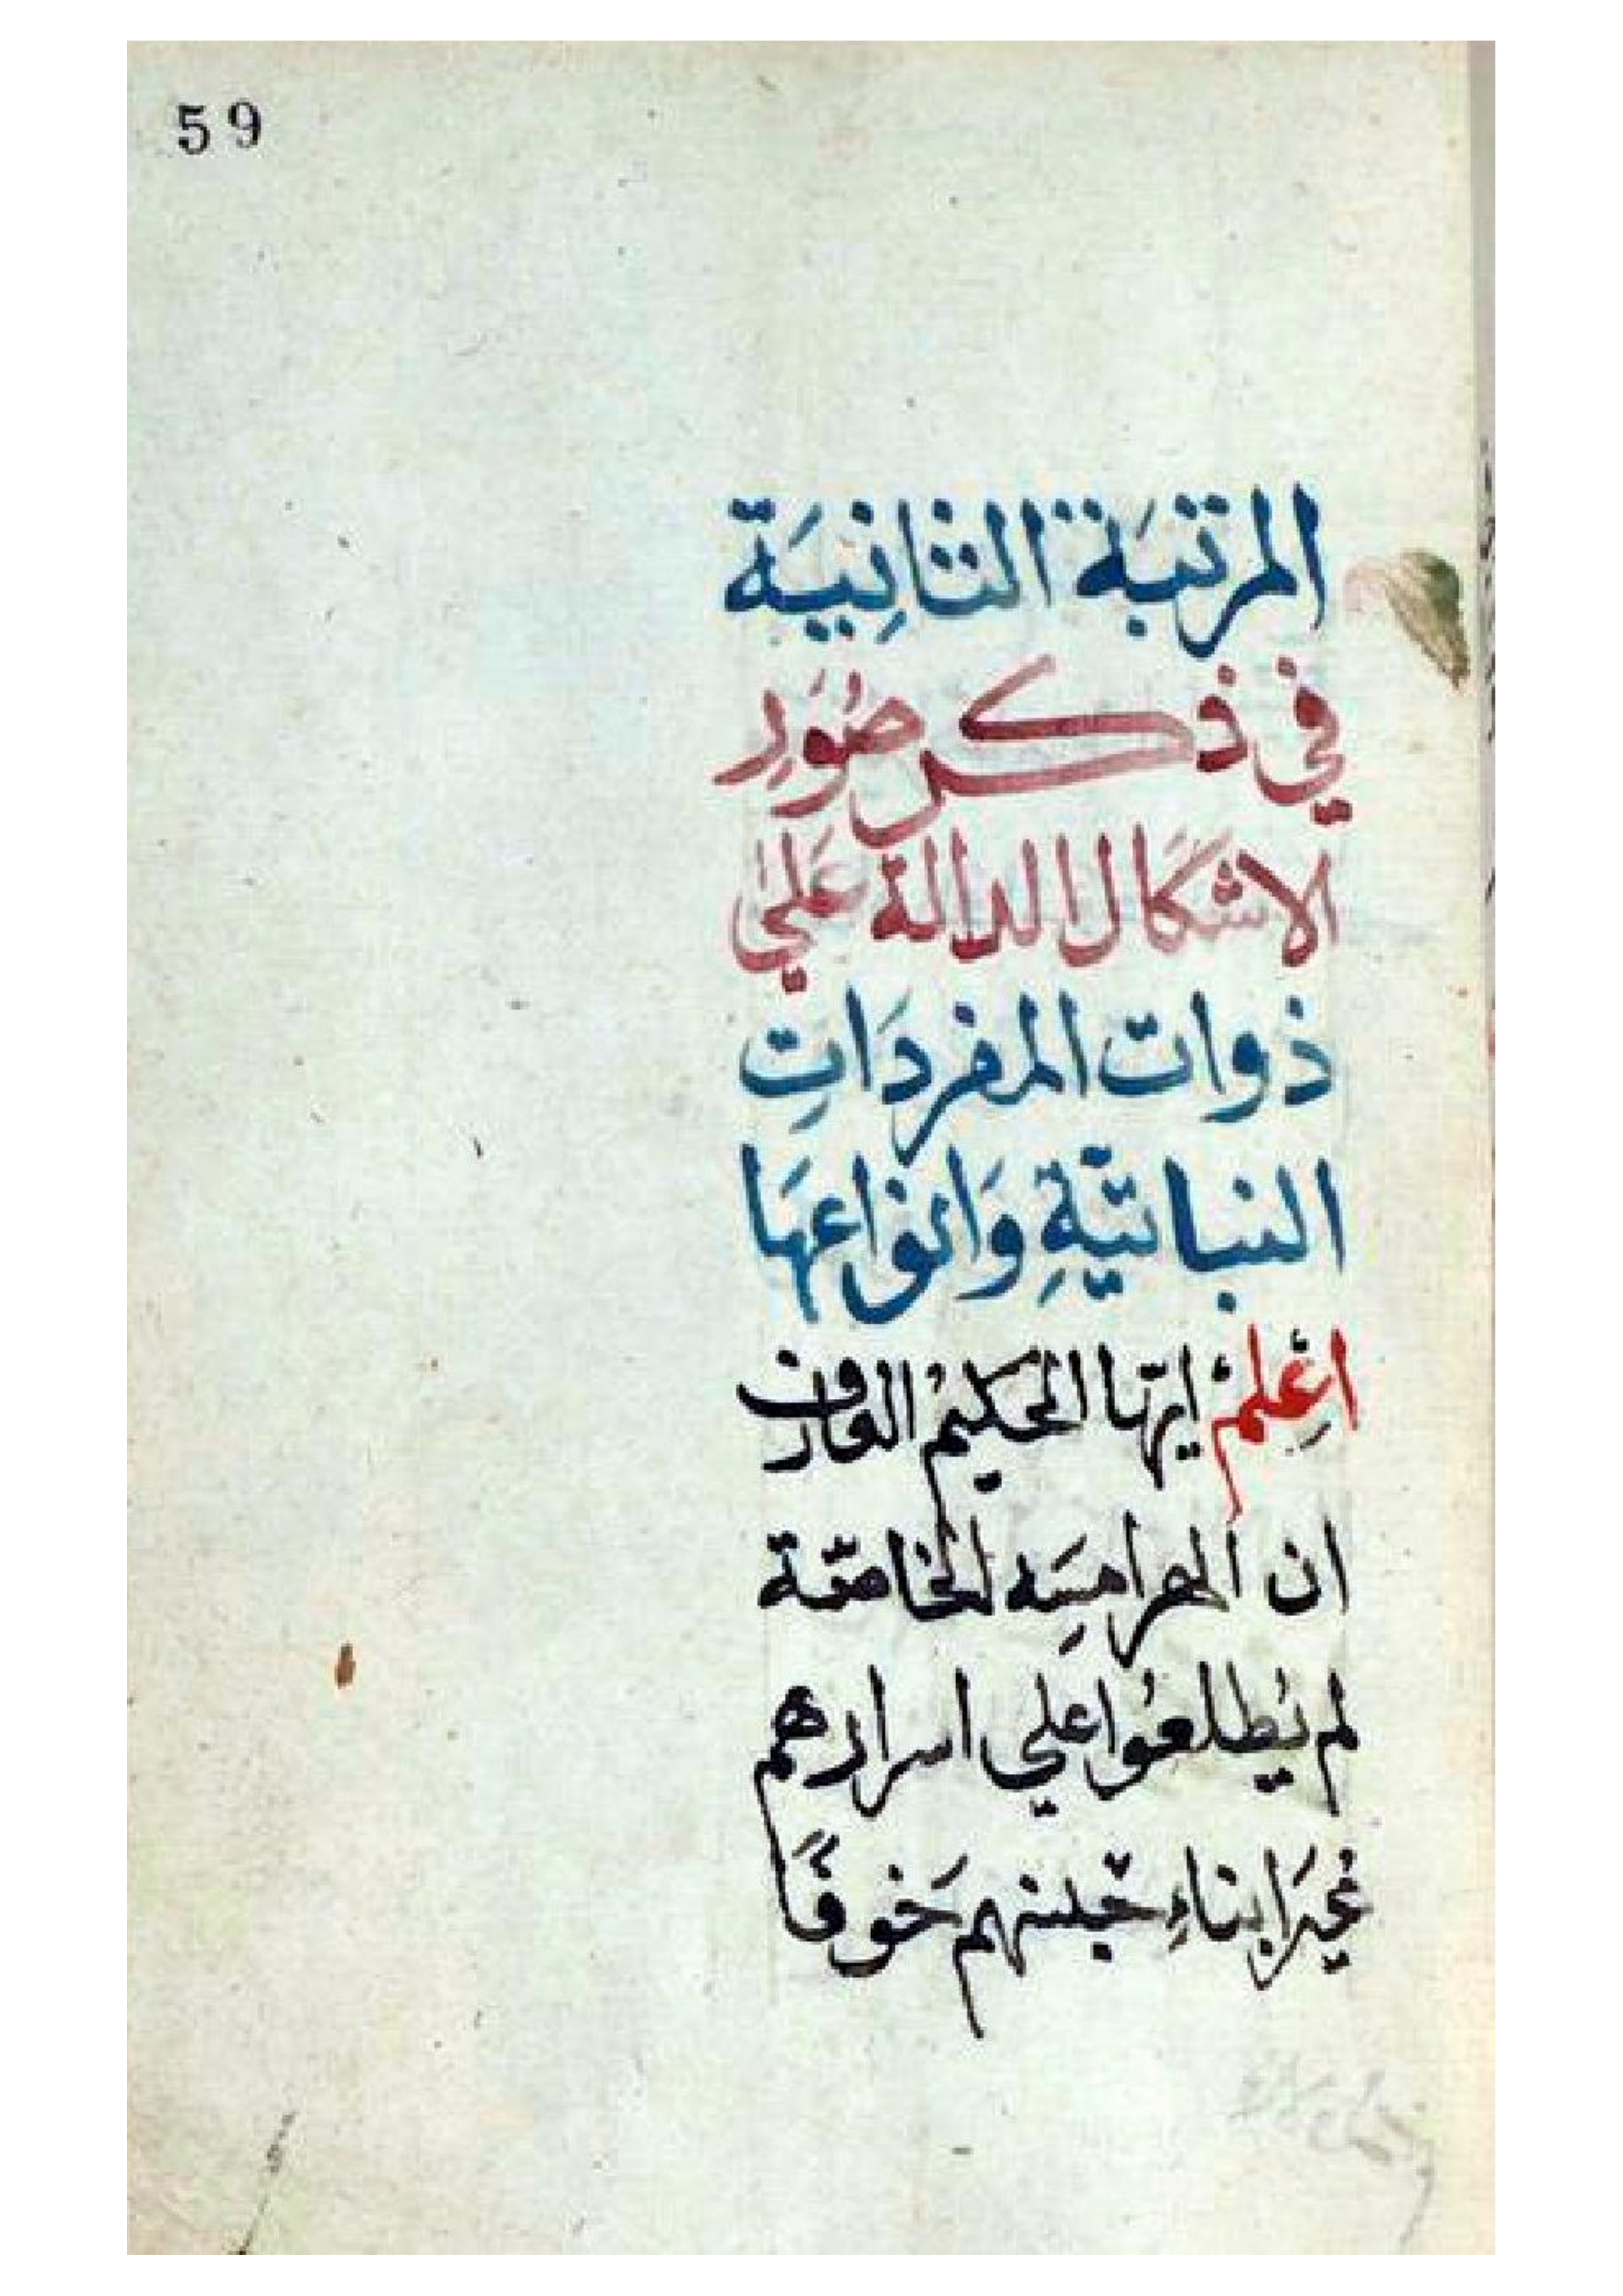 59
المرتبَة الثانِيَة
في ذكر صُوَرِ
الاشكَال الدالة عَليٰ
ذوات المفردَاتِ
النباتيّةِ وَانواعهَا
اعْلِمْ ايهّا الحَكيمُ العَارف
ان الهرامِسَه الخاصّة
لم يُطلعُوا علي اسرارهم
غيرَ ابناءِ جنسهم خَوفًا